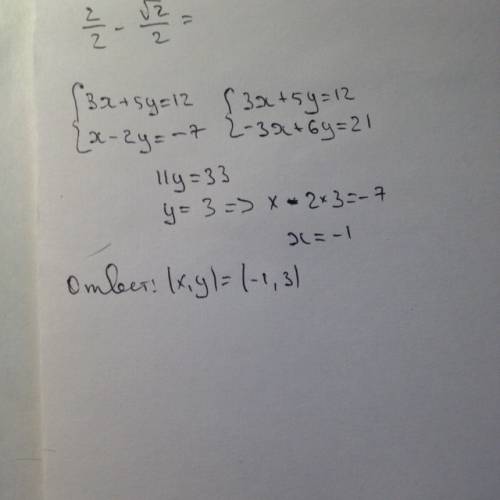 2/2 - √2/2 =
{3x+5y=12 {3x+5y=12
{x-2y=-7 {-3x+6y=21
11y=33
y=3 => x-2*3=-7
x=-1
Ответ: (x,y)=(-1,3)